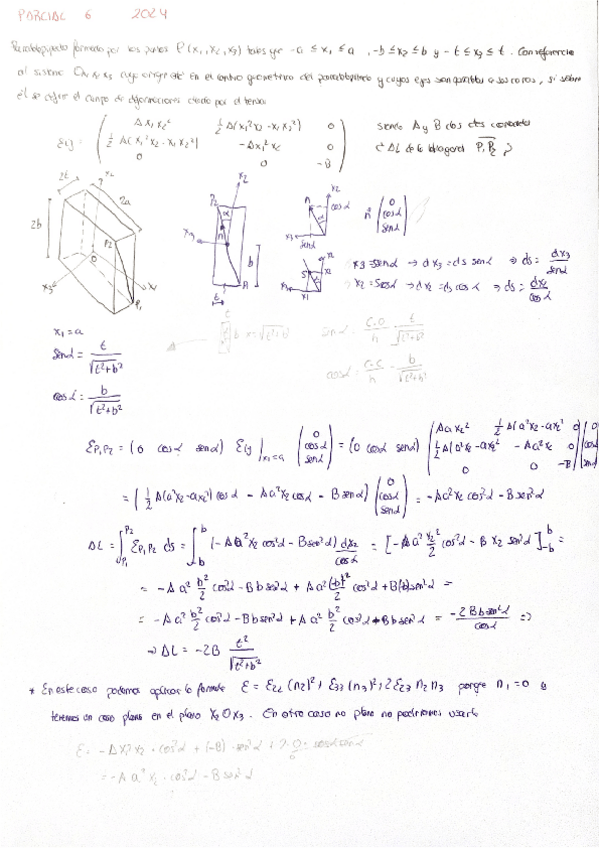 PARCIAL 6 2024
Paralelepípedo formado por los puntos P(x₁, x₂, x₃) tales que -a ≤ x₁ ≤ a, -b ≤ x₂ ≤ b y -t ≤ x₃ ≤ t. Con referencia
al sistema Ox₁x₂x₃ cuyo origen está en el centro geométrico del paralelepípedo y cuyos ejes son paralelos a sus caras, si sobre
él se define el campo de deformaciones dado por el tensor
Εij = ( Ax₁x₂² ½A(x₁²x₂-x₁x₂²) 0 siendo A y B dos ctes conocidas
½A(x₁²x₂-x₁x₂²) -Ax₁²x₂ 0 ¿ΔL de la diagonal P₁P₂?
0 0 -B )
2t x₂ 2a x₂ x₂
2b P₂ P₂ α n cosα n̄ (0 cosα senα)
x₃ b x₃ senα
O x₃ x₁
P₁ t
x₃=s senα → dx₃=ds senα ⇒ ds= dx₃/senα
x₂=s cosα → dx₂=ds cosα ⇒ ds= dx₂/cosα
x₁=a
senα = t/√(t²+b²) senα = C.O/h = t/√(t²+b²)
cosα = b/√(t²+b²) cosα = C.C/h = b/√(t²+b²)
ΕP₁P₂ = (0 cosα senα) Εij|x₁=a (0 cosα senα) = (0 cosα senα) (Aax₂² ½A(a²x₂-ax₂²) 0 ½A(a²x₂-ax₂²) -Aa²x₂ 0 0 0 -B) (0 cosα senα)
= (½A(a²x₂-ax₂²)cosα -Aa²x₂cosα -Bsenα) (0 cosα senα) = -Aa²x₂cos²α - Bsen²α
ΔL = ∫P₁P₂ ΕP₁P₂ ds = ∫-b b (-Aa²x₂cos²α - Bsen²α) dx₂/cosα = [-Aa² x₂²/2 cos²α - Bx₂sen²α]-b b =
= -Aa² b²/2 cos²α - Bbsen²α + Aa² (-b)²/2 cos²α + B(-b)sen²α =
= -Aa² b²/2 cos²α - Bbsen²α + Aa² b²/2 cos²α - Bbsen²α = -2Bbsen²α/cosα ⇒
⇒ ΔL = -2B t²/√(t²+b²)
* En este caso podemos aplicar la formula Ε = Ε₂₂(n₂)² + Ε₃₃(n₃)² + 2Ε₂₃n₂n₃ porque n₁=0 y
tenemos un caso plano en el plano x₂Ox₃. En otro caso no plano no podríamos usarlo
Ε = -Ax₁²x₂·cos²α + (-B)·sen²α + 2·0·senαcosα
= -Aa²x₂·cos²α - Bsen²α